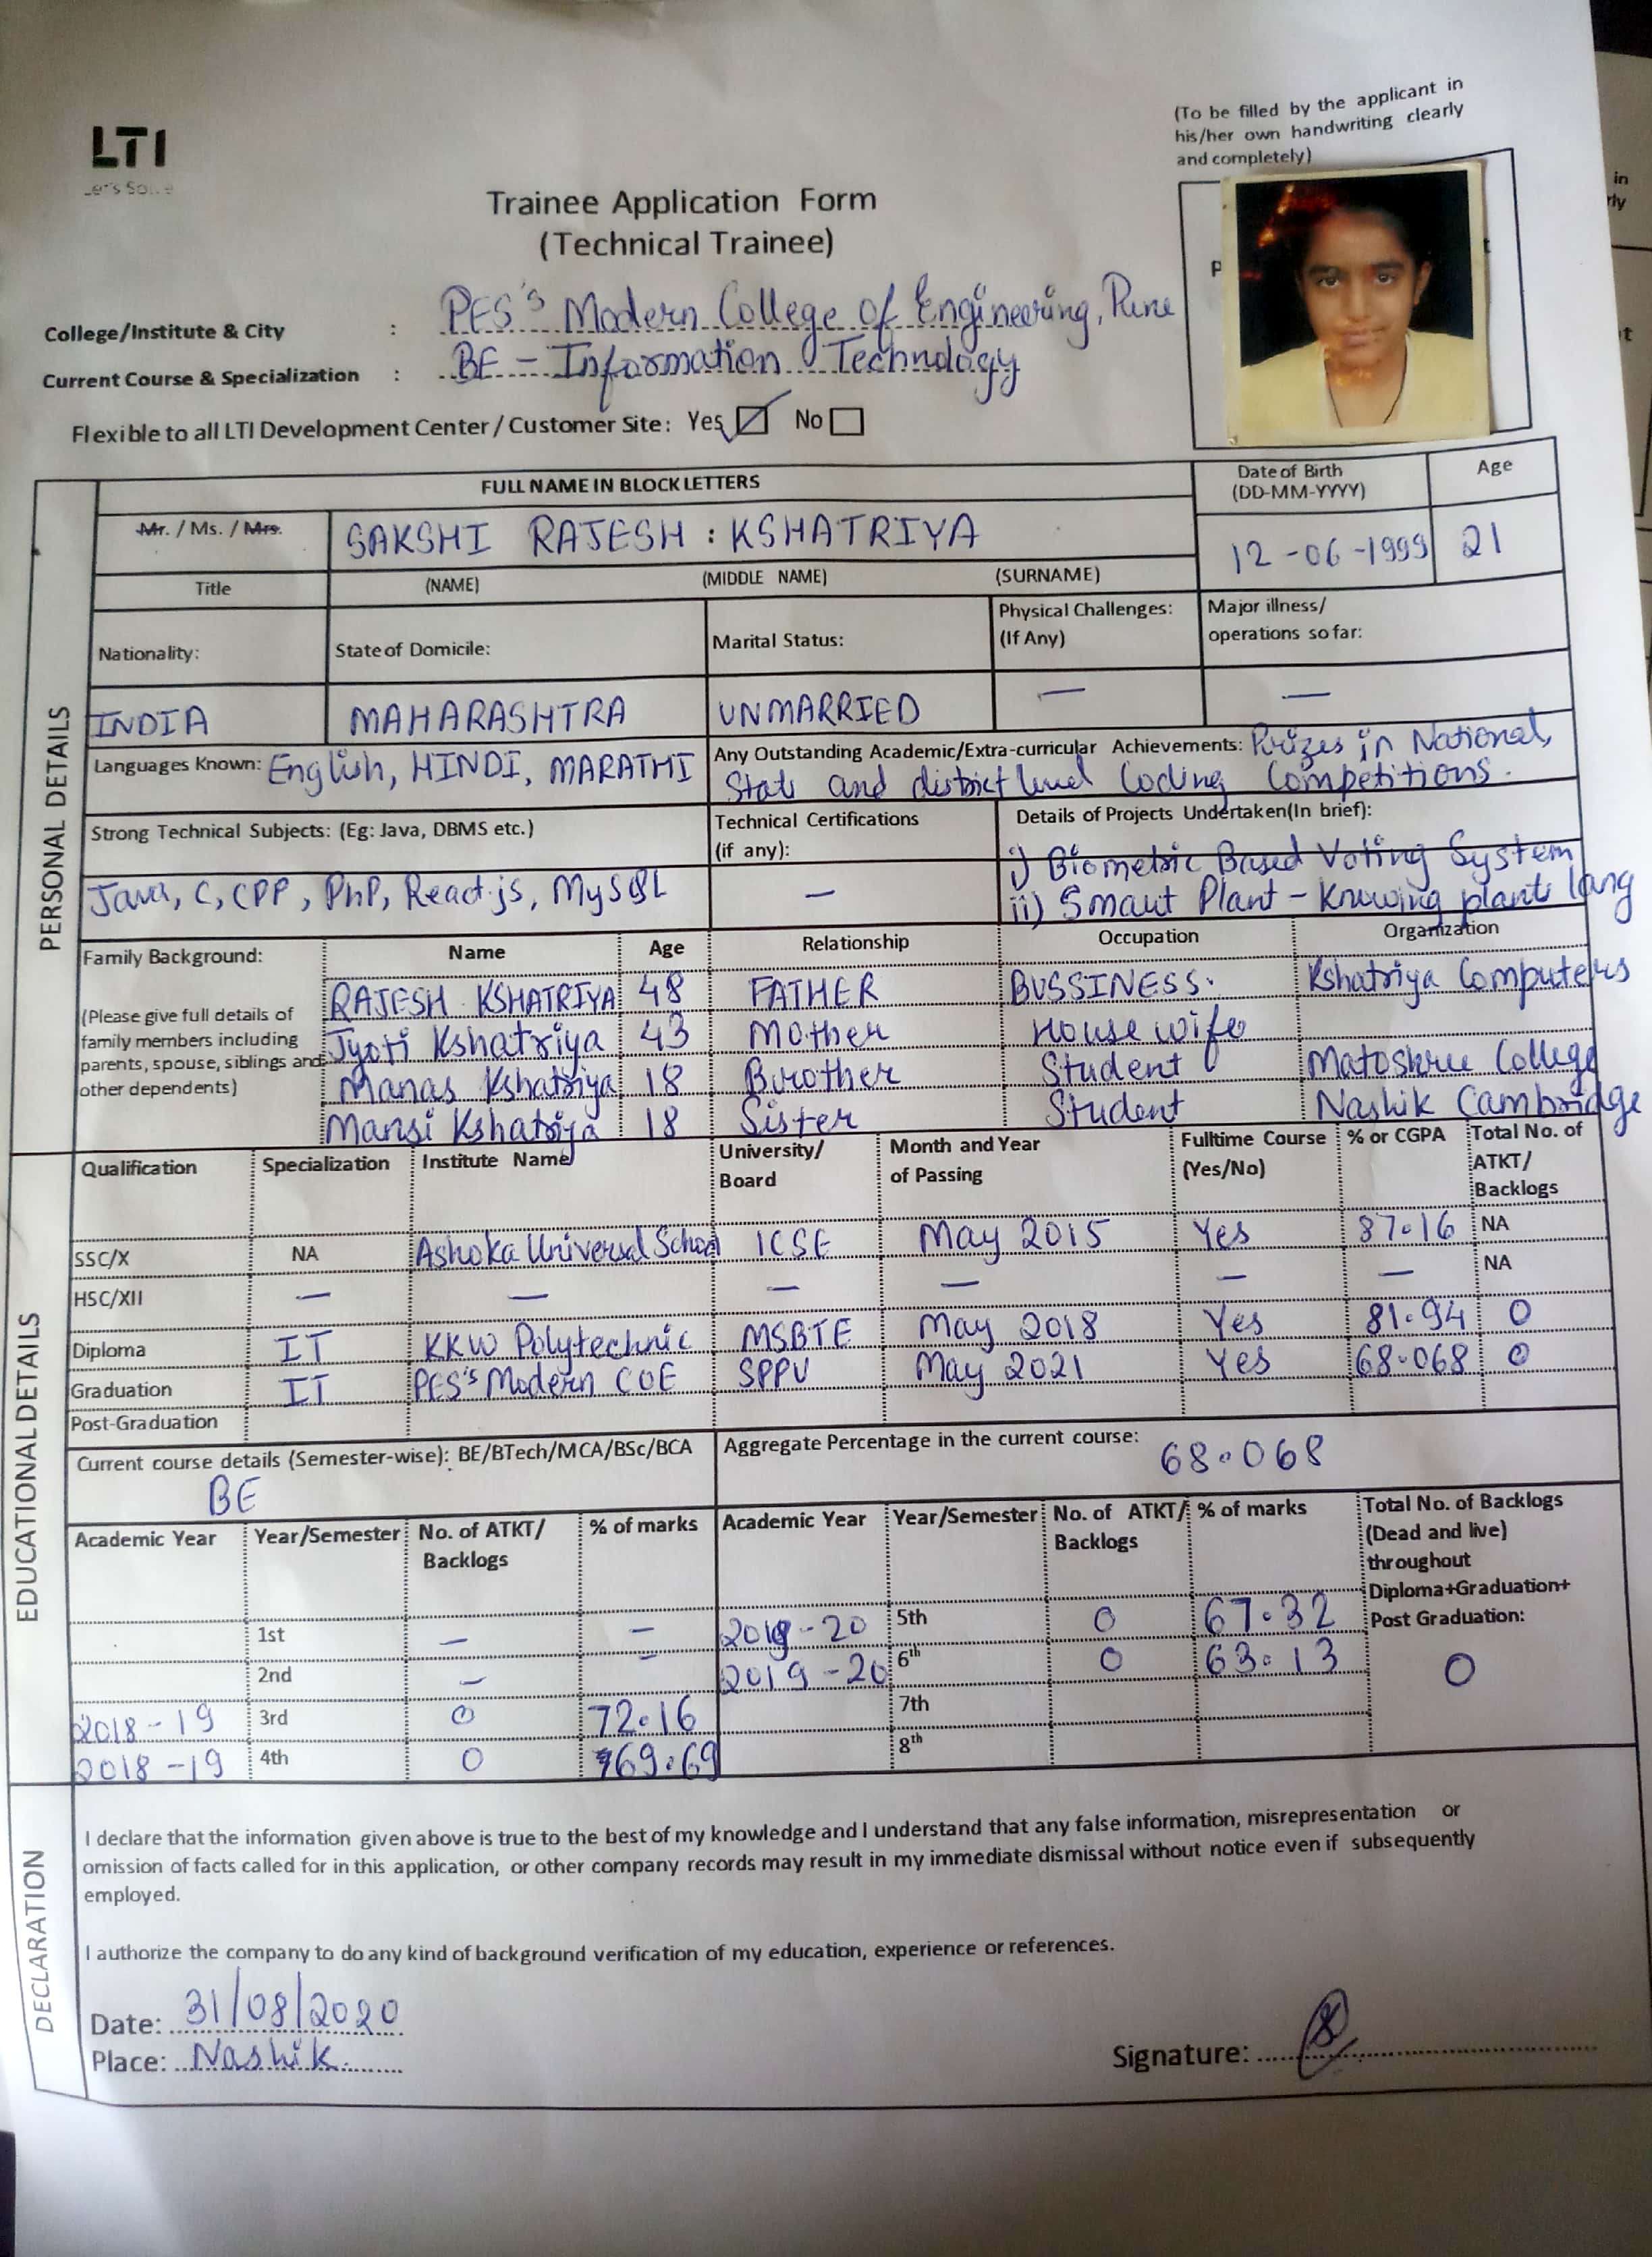 (To be filled by the applicant in
his/her own handwriting clearly
and completely)
LTI
Let's Solve
Trainee Application Form
(Technical Trainee)
College/Institute & City : PES's Modern College of Engineering, Pune
Current Course & Specialization : BE - Information Technology
Flexible to all LTI Development Center / Customer Site: Yes No
PERSONAL DETAILS
FULL NAME IN BLOCK LETTERS Date of Birth (DD-MM-YYYY) Age
Mr. / Ms. / Mrs. SAKSHI RAJESH : KSHATRIYA 12-06-1999 21
Title (NAME) (MIDDLE NAME) (SURNAME)
Nationality: State of Domicile: Marital Status: Physical Challenges: (If Any) Major illness/ operations so far:
INDIA MAHARASHTRA UNMARRIED — —
Languages Known: English, HINDI, MARATHI
Any Outstanding Academic/Extra-curricular Achievements: Prizes in National,
State and district level Coding Competitions.
Strong Technical Subjects: (Eg: Java, DBMS etc.) Technical Certifications (if any): Details of Projects Undertaken(In brief):
Java, C, CPP, PhP, React.js, MySQL —
i) Biometric Based Voting System
ii) Smart Plant - Knowing plants lang
Family Background: Name Age Relationship Occupation Organization
(Please give full details of
family members including
parents, spouse, siblings and
other dependents)
RAJESH KSHATRIYA 48 FATHER BUSSINESS. Kshatriya Computers
Jyoti Kshatriya 43 Mother House wife
Manas Kshatriya 18 Brother Student Matoshree College
Mansi Kshatriya 18 Sister Student Nashik Cambridge
EDUCATIONAL DETAILS
Qualification Specialization Institute Name University/ Board Month and Year of Passing Fulltime Course (Yes/No) % or CGPA Total No. of ATKT/ Backlogs
SSC/X NA Ashoka Universal School ICSE May 2015 Yes 87.16 NA
HSC/XII — — — — — — NA
Diploma IT KKW Polytechnic MSBTE May 2018 Yes 81.94 0
Graduation IT PES's Modern COE SPPU May 2021 Yes 68.068 0
Post-Graduation
Current course details (Semester-wise): BE/BTech/MCA/BSc/BCA
BE
Aggregate Percentage in the current course: 68.068
Academic Year Year/Semester No. of ATKT/ Backlogs % of marks Academic Year Year/Semester No. of ATKT/ Backlogs % of marks Total No. of Backlogs
(Dead and live)
throughout
Diploma+Graduation+
Post Graduation:
1st — — 2019-20 5th 0 67.32
2nd — — 2019-20 6th 0 63.13 0
2018-19 3rd 0 72.16 7th
2018-19 4th 0 69.69 8th
DECLARATION
I declare that the information given above is true to the best of my knowledge and I understand that any false information, misrepresentation or
omission of facts called for in this application, or other company records may result in my immediate dismissal without notice even if subsequently
employed.
I authorize the company to do any kind of background verification of my education, experience or references.
Date: 31/08/2020
Place: Nashik.
Signature: